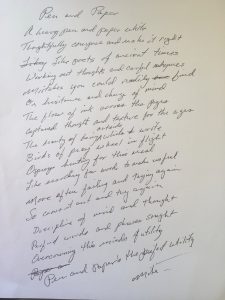 Pen and Paper
A heavy pen and paper white
Thoughtfully compose and make it right
Today like poets of ancient times
Working out thoughts and careful rhymes
Mistakes you could readily find
On hesitance and change of mind
The flow of ink across the page
Captured thought and texture for the ages
The beauty of being able to write
Birds of prey wheel in flight
Ospreys hunting for their meal
Like searching for words to make useful
More after failing and trying again
So snort it out and try again
Discipline of mind and thought
Perfect words and phrases sought
Overcoming the minds futility
Pen and Paper is the perfect utility